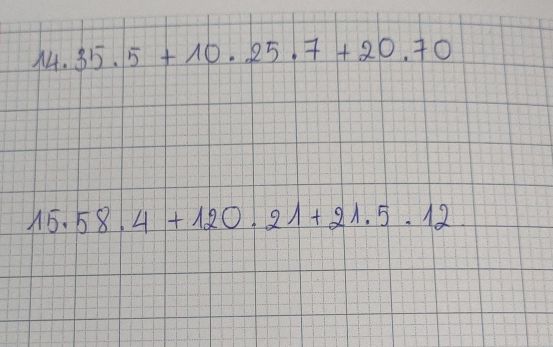 14.35.5 + 10.25.7 + 20.70
15.58.4 + 120.21 + 21.5.12